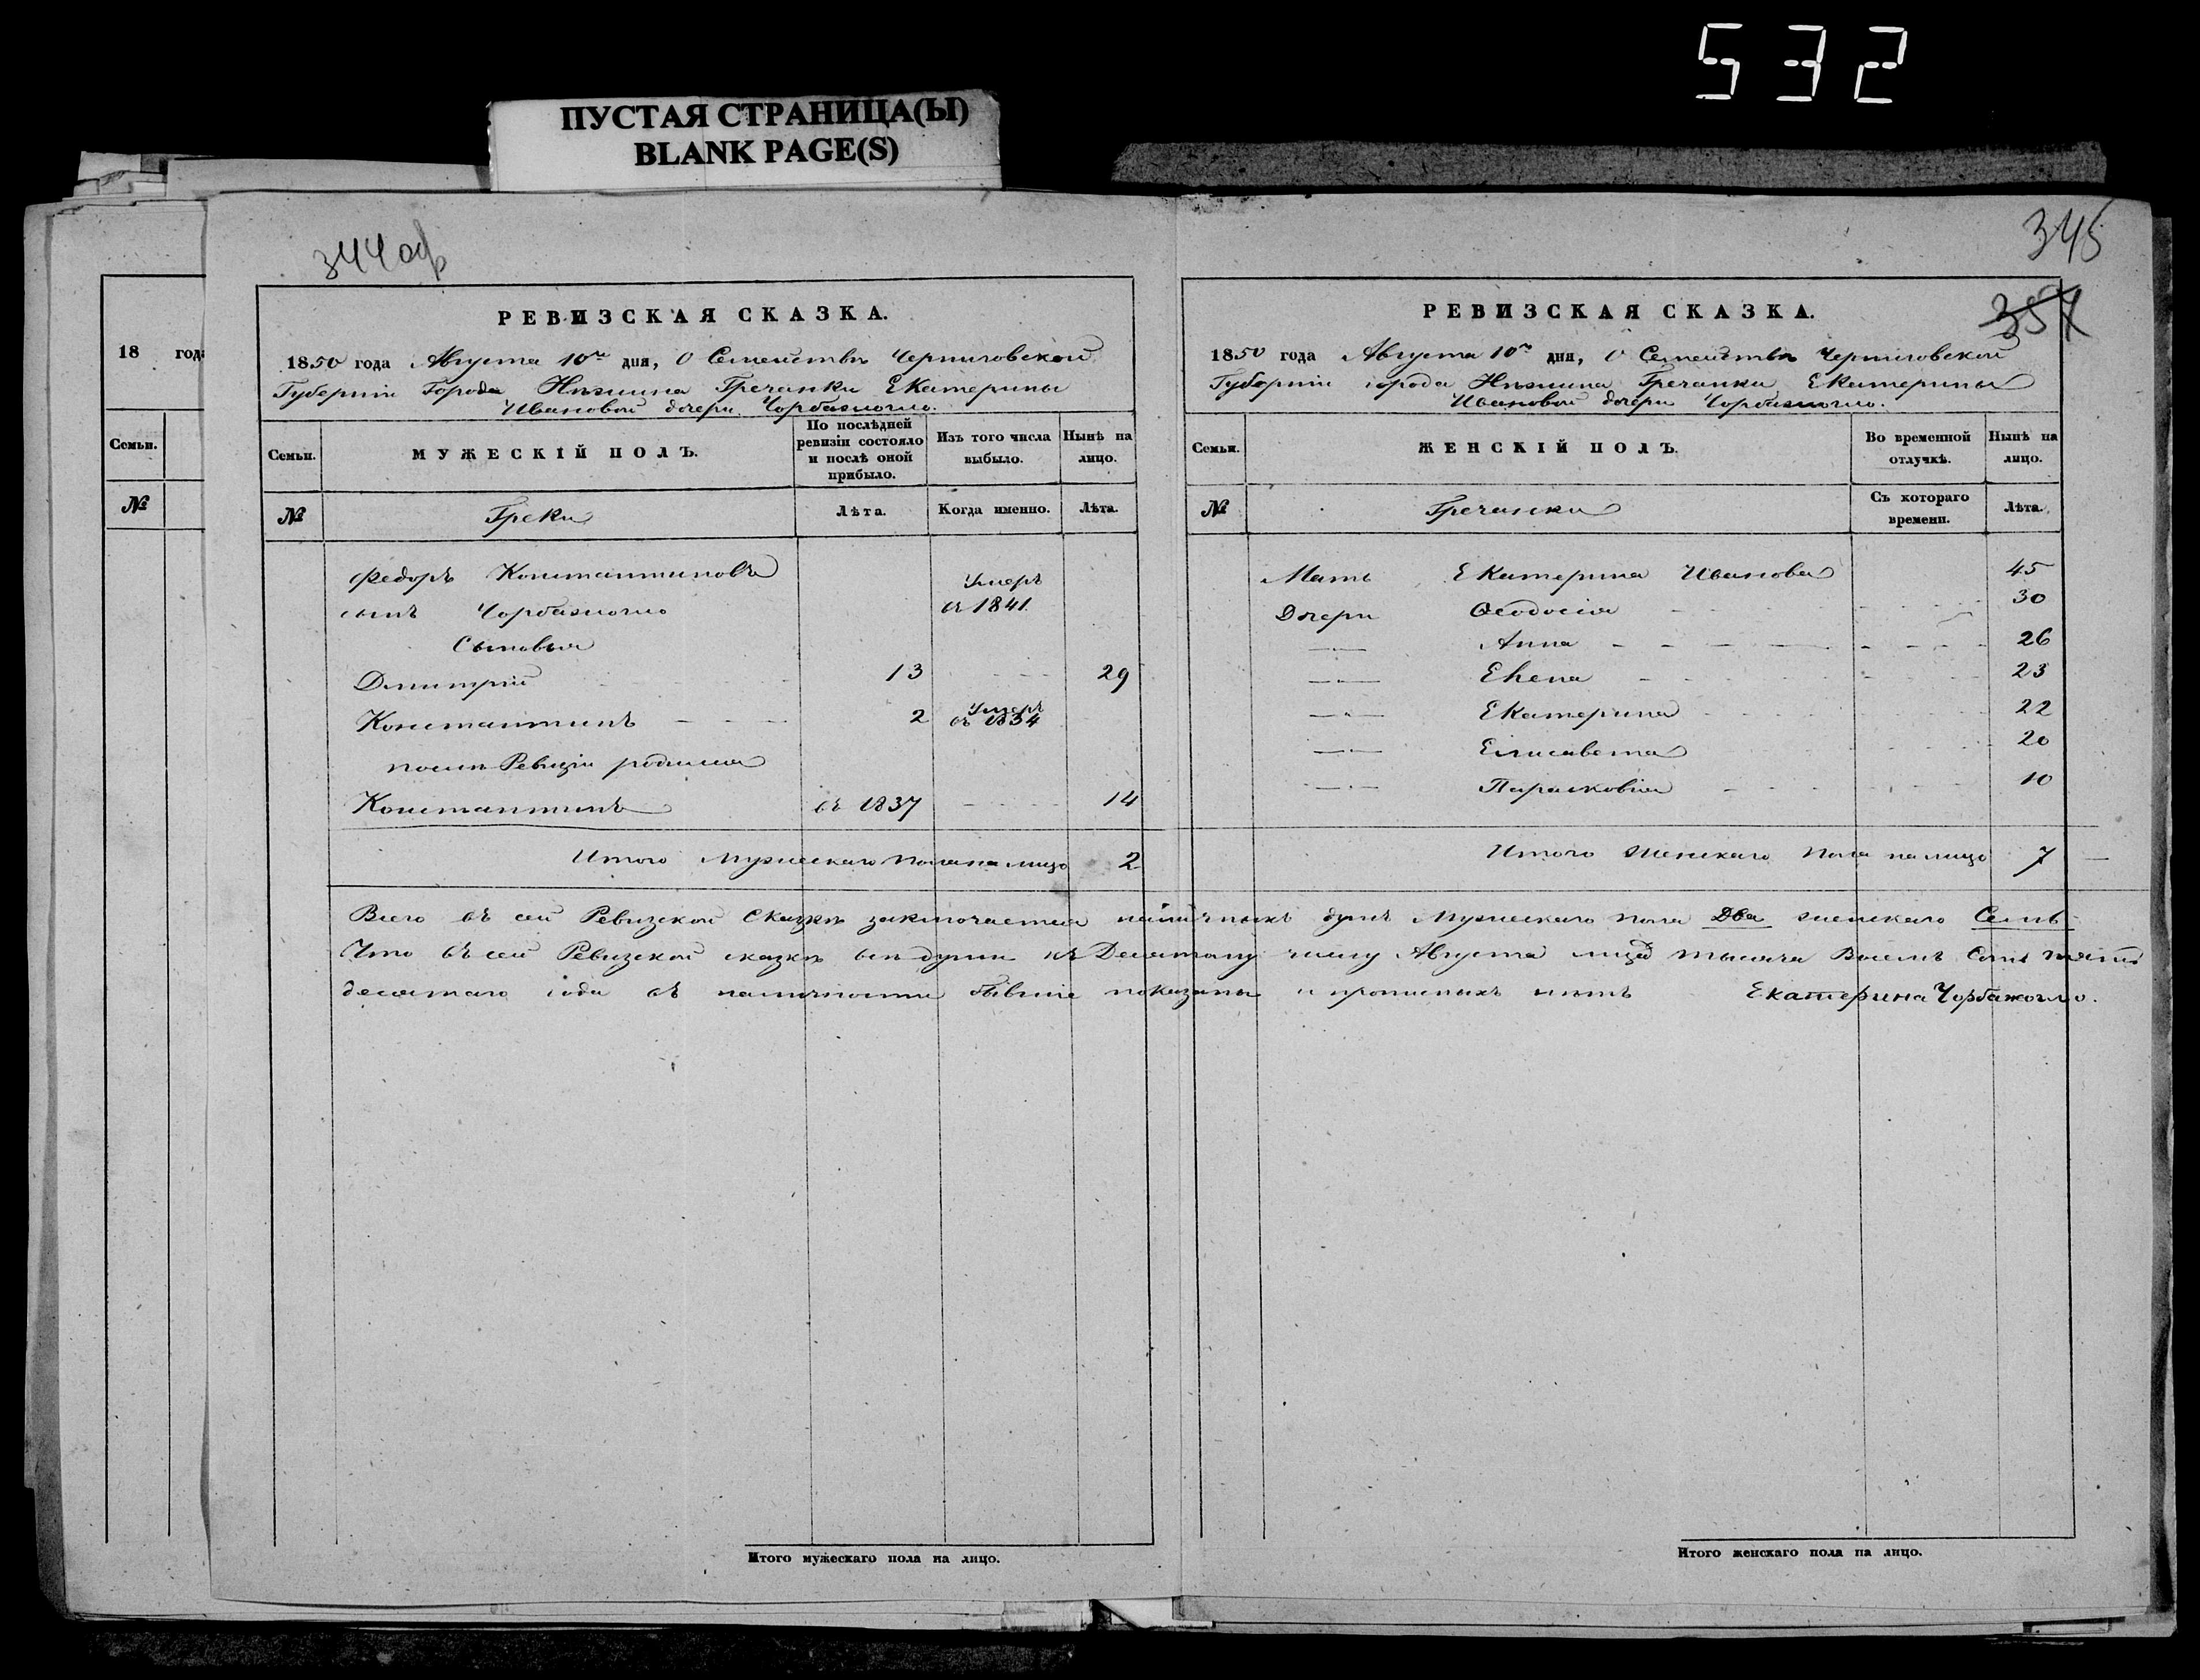 532
ПУСТАЯ СТРАНИЦА(Ы)
BLANK PAGE(S)
18 год
Семьи.
№
344 об
РЕВИЗСКАЯ СКАЗКА.
1850 года Августа 10го дня, О Семействѣ Черниговской
Губерніи Города Нѣжина Гречанки Екатерины
Ивановой дочери Чорбажогло.
Семьи.
МУЖЕСКІЙ ПОЛЪ.
По послѣдней ревизіи состояло и послѣ оной прибыло.
Изъ того числа выбыло.
Нынѣ на лицо.
№
Греки
Лѣта.
Когда именно.
Лѣта.
Федоръ Константиновъ Умеръ
сынъ Чорбажогло въ 1841
Сыновья
Дмитрій 13 29
Константинъ 2 Умеръ въ 1834
послѣ Ревизіи родился
Константинъ въ 1837 14
Итого Мужескаго пола на лицо 2
345
357
РЕВИЗСКАЯ СКАЗКА.
1850 года Августа 10го дня, О Семействѣ Черниговской
Губерніи города Нѣжина Гречанки Екатерины
Ивановой дочери Чорбажогло.
Семьи.
ЖЕНСКІЙ ПОЛЪ.
Во временной отлучкѣ.
Нынѣ на лицо.
№
Гречанки
Съ котораго времени.
Лѣта.
Мать Екатерина Иванова 45
Дочери Ѳеодосія 30
—"— Анна 26
—"— Елена 23
—"— Екатерина 22
—"— Елисавета 20
—"— Парасковія 10
Итого женскаго пола на лицо 7
Всего въ сей Ревизской Сказкѣ заключается наличныхъ душъ Мужескаго пола Два женскаго Семь
Что въ сей Ревизской сказкѣ всѣ души къ Десятому числу Августа тысяча Восемь Сотъ пять
десятаго года въ наличности бывшіе показаны и прописныхъ нѣтъ Екатерина Чорбажогло.
Итого мужескаго пола на лицо.
Итого женскаго пола на лицо.